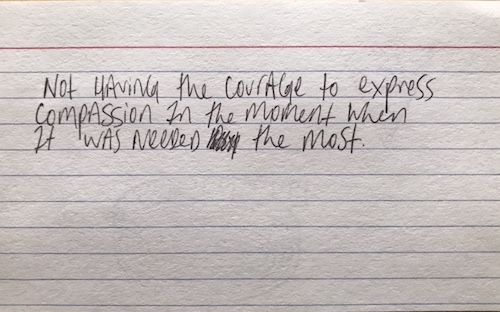 Not HAVING the courAge to express
compAssion In the moment when
It wAs Needed the most.